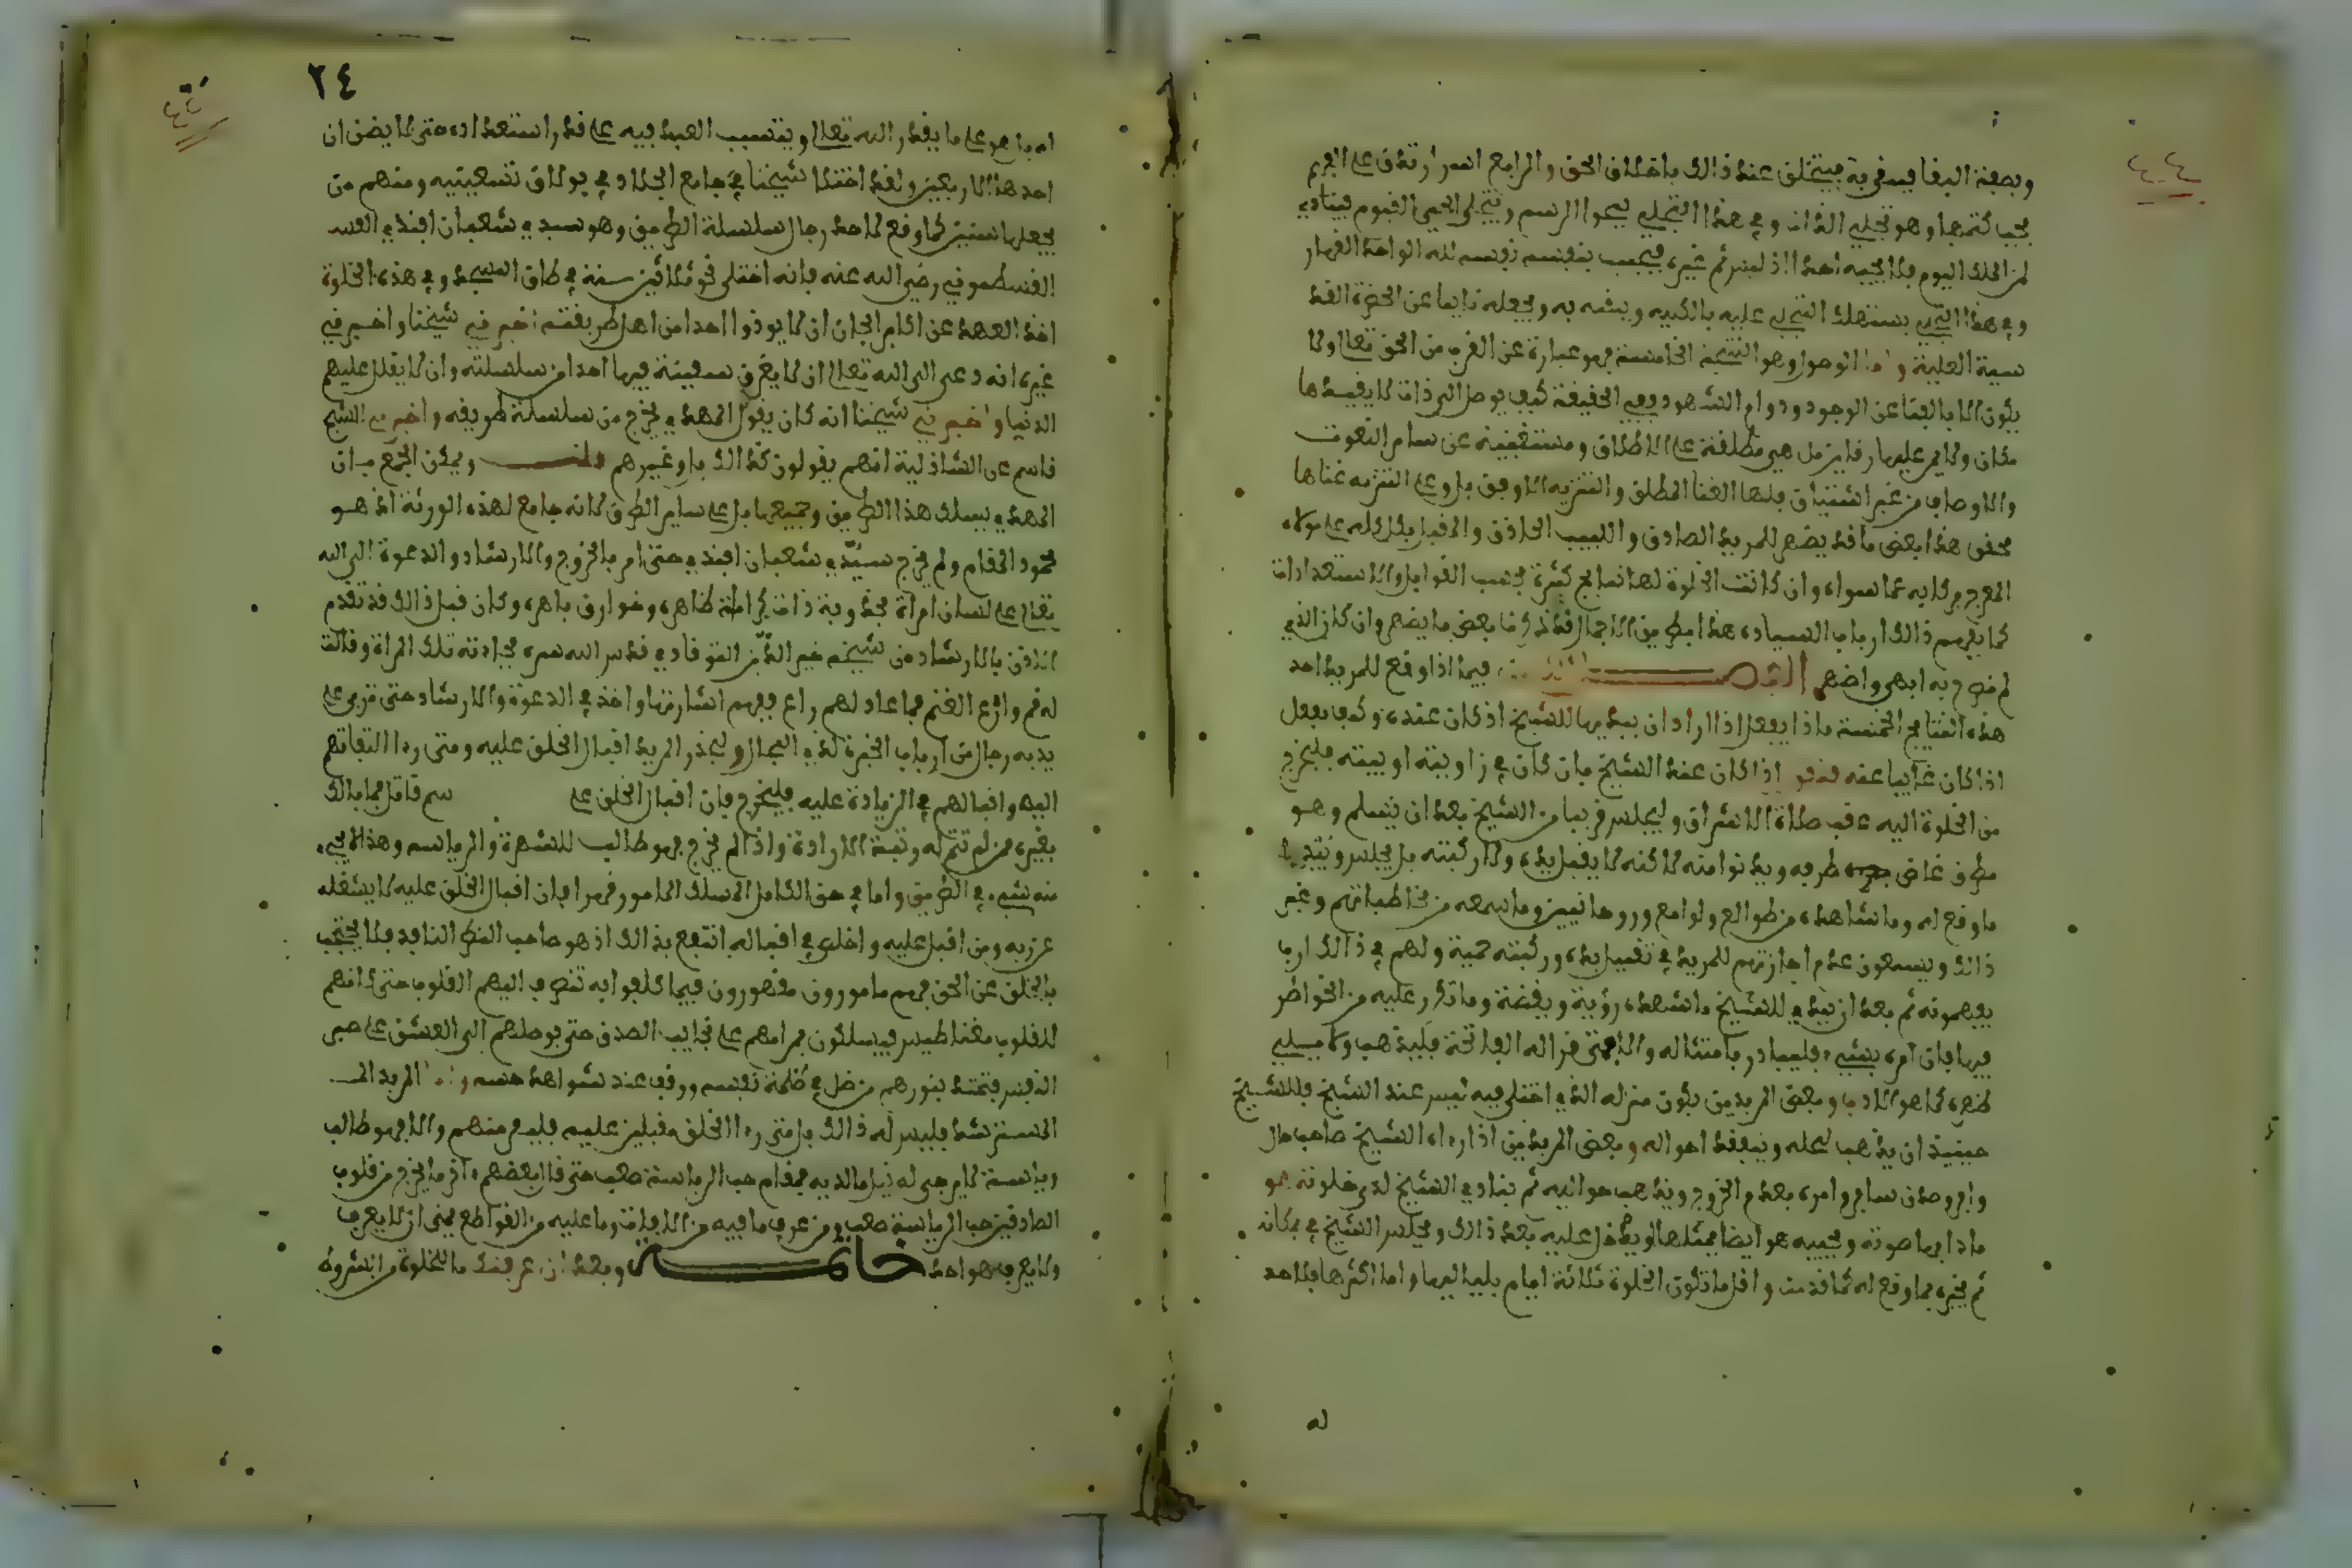 وبصفة البقا فيه فربة فيتخلق عند ذالك باخلاق الحق والرابع اسرار تدق على الفهم
يجب كتمها وهو تجلي الذات وفي هذا التجلي يمحوا الرسم ويتجلى الحي القيوم فينادي
لمن الملك اليوم فلا يجيبه احدا اذ ليس ثم غيره فيجيب بنفسه نفسه لله الواحد القهار
وفي هذا التجلي يستهلك المتجلي عليه بالكلية ويثبته به ويجعله نايبا عن الحضرة القد
سية العلية واما الوصول وهو النتيجة الخامسة فهو عبارة عن القرب من الحق تعالى ولا
يكون الا بالفنا عن الوجود ودوام الشهود وفي الحقيقة كيف يوصل الى ذات لا يقيدها
مكان ولا يمر عليها زمان بل هي مطلقة على الاطلاق ومستغنية عن ساير النعوت
والاوصاف من غير اشتياق فلها الغنا المطلق والتنزيه الاوفق بل وعلى التنزيه غناها
محقق هذا بعض ما قد يظهر للمريد الصادق واللبيب الحاذق والمقبل بكله على مولاه
المعرج بركابه عما سواه وان كانت الخلوة لها نتايج كثيرة بحسب القوابل والاستعدادات
كما يفهم ذالك ارباب السيادة هذا بطريق الاجمال فقد ذكرنا بعض ما يظهر وان كان الذي
لم نصرح به ابهى واظهر الفصل فيما اذا وقع للمريد احد
هذه النتايج الخمسة ماذا يفعل اذا اراد ان يبديها للشيخ اذ كان عنده وكيف يفعل
اذا كان غايبا عنه فنقول اذا كان عند الشيخ بان كان في زاويته او بيته فليخرج
من الخلوة اليه عقب صلاة الاشراق وليجلس قريبا من الشيخ بعد ان يسلم وهو
مطرق غاض طرفه ويد نوامته لاكنه لا يقبل يده ولا ركبته بل يجلس ويبدي
ما وقع له وما شاهده من طوالع ولوامع وروحانيين وما سمعه من مخاطباتهم وغير
ذالك ويسمعون عدم اجازتهم للمريد في تقبيل يده وركبته حمية ولهم في ذالك ارب
يفهمونه ثم بعد ان يبدي للشيخ ما شهده رؤية ويقظة وما تكرر عليه من الخواطر
فيها فان امره بشيء فليبادر بامتثاله والا فمتى قرا له الفاتحة فليذهب ولا يولي
ظهره كما هو الادب وبعض المريدين يكون منزله الذي اختلى فيه ليس عند الشيخ فللشيخ
حينيذ ان يذهب لمحله ويتفقد احواله وبعض المريدين اذا اراد الشيخ صاحب حال
وافر وصدق سافر وامره بعدم الخروج ويذهب هو اليه ثم ينادي الشيخ لدى خلوته هو
مادا بها صوته ويجيبه هو ايضا بمثلها ويدخل عليه بعد ذالك ويجلس الشيخ في مكانه
ثم يخبره بما وقع له كما قدمت واقل ما تكون الخلوة ثلاثة ايام بلياليها واما اكثرها فلا حد
له
٤٤
٢٤
له بل هو على ما يقدر الله تعالى ويتسبب العبد فيه على قدر استعداده حتى لا يضن ان
احدها الاربعين ولقد اختلا شيخنا في جامع الجلاد في بولاق تسعينيه ومنهم من
يجعلها سنين كما وقع لاحد رجال سلسلة الطريق وهو سيدي شعبان افندي القس
القسطموني رضي الله عنه فانه اختلى نحو ثلاثين سنة في طاق المسجد وفي هذه الخلوة
اخذ العهد عن اكابر الجان ان لا يوذوا احدا من اهل طريقته اخبرني شيخنا واخبرني
غيره انه دعى الى الله تعالى ان لا يغرق سفينة فيها احد من سلسلته وان لا يقلل عليهم
الدنيا واخبرني شيخنا انه كان يقول المهدي يخرج من سلسلة طريقه واخبرني الشيخ
قاسم عن الشاذلية انهم يقولون كذالك بل وغيرهم قلت ويمكن الجمع بان
المهدي يسلك هذا الطريق وجميعها بل على ساير الطرق لانه جامع لهذه الورثة اذ هو
محمود المقام ولم يخرج سيدي شعبان افندي حتى امر بالخروج والارشاد والدعوة الى الله
تعالى على لسان امراة مجذوبة ذات كرامة ظاهرة وخوارق باهرة وكان قبل ذالك قد تقدم
الاذن بالارشاد من شيخه خير الدين التوقادي قدس الله سره فجادته تلك المراة وقالت
له قم وارع الغنم فما عاد لهم راع ففهم اشارتها واخذ في الدعوة والارشاد حتى تربى على
يديه رجال من ارباب الخبرة لذي المجال وليحذر المريد اقبال الخلق عليه ومتى راا التفاتهم
اليه واقبالهم في الزيادة عليه فليخرج فان اقبال الخلق على سم قاتل فما بالك
بغيره ممن لم تتم له رتبة الارادة واذا لم يخرج فهو طالب للشهرة والرياسه وهذا لا يجيء
منه شيء في الطريق واما في حق الكامل المسلك المامور فهرا فان اقبال الخلق عليه لا يشغله
عن ربه ومن اقبل عليه واخلص في اقباله انتفع بذالك اذ هو صاحب النظر النافد فلا يحتجب
بالخلق عن الحق فهم مامورون مقهورون فيما كلفوا به تنصرف اليهم القلوب حتى كانهم
للقلوب مغناطيس فيسلكون بمرامهم على نجايب الصدق حتى يوصلهم الى العشق على حسر
النفيس فتهتد بنورهم من ضل في ظلمة نفسه ووقف عند شواهد حسه واما المريد الـ
المسترشد فليس له ذالك بل متى راا الخلق مقبلين عليه فليفر منهم والا فهو طالب
رياسة لا يرجى له نيل مالديه فمقام حب الرياسة صعب حتى قال بعضهم اخر ما يخرج من قلوب
الصادقين حب الرياسة صعب ومن عرف ما فيه من الافات وما عليه من القواطع تمنى ان لا يعرف
ولا يعرفه واحد خاتمه وبعد ان عرفتك ما للخلوة من الشروط